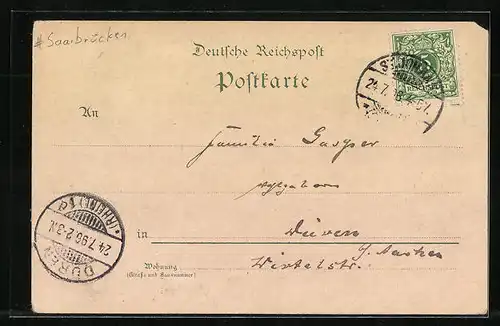 #Saarbrücken
Deutsche Reichspost
Postkarte
24.7.
An
Familie Gasper
in Düren
Wirtelstr.
Wohnung
(Straße und Hausnummer)
DÜREN
(RHEINL)
24.7.96.2-3.N.